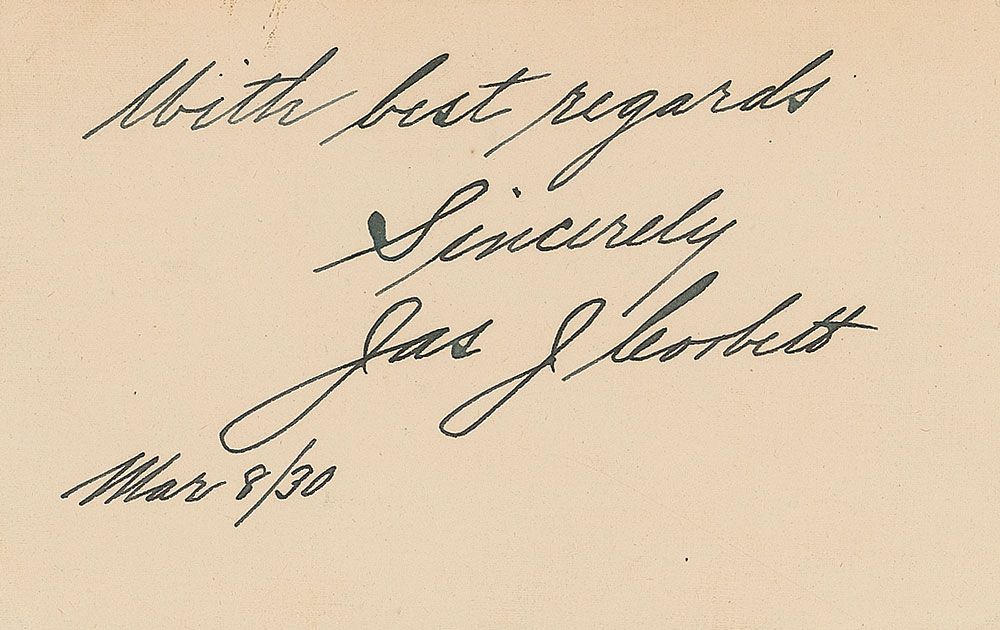 With best regards
Sincerely
Jas J Corbett
Mar 8/30